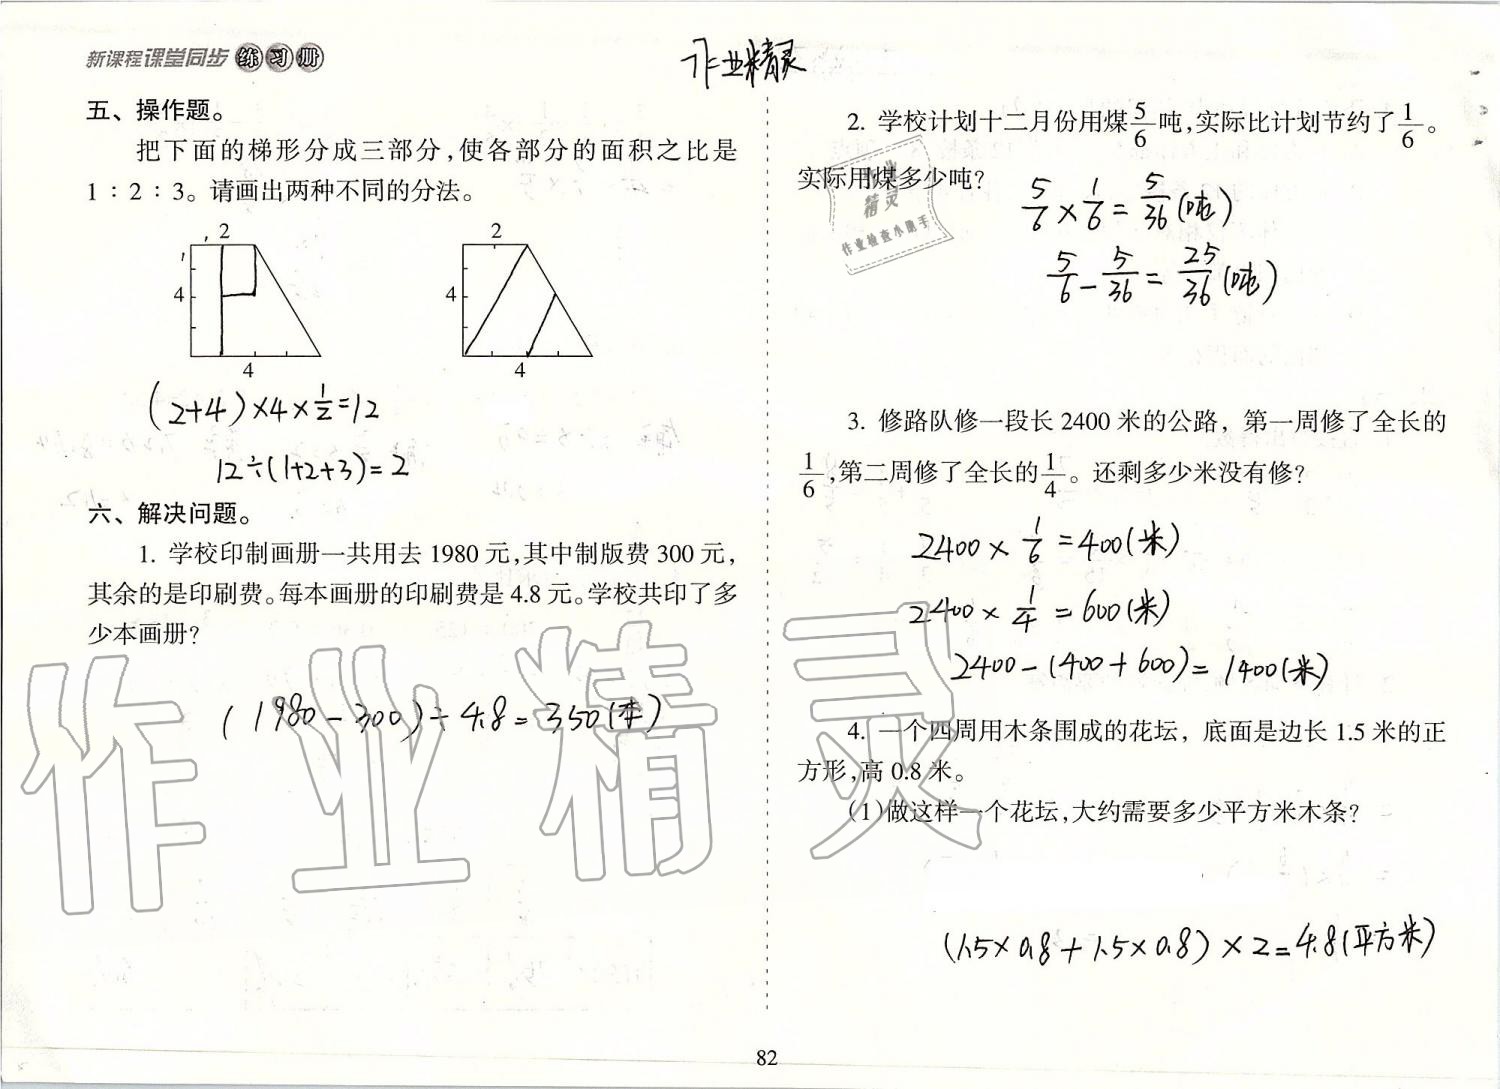 新课程课堂同步练习册
作业精灵
五、操作题。
把下面的梯形分成三部分,使各部分的面积之比是
1∶2∶3。请画出两种不同的分法。
2
4
4
2
4
4
(2+4)×4×1/2=12
12÷(1+2+3)=2
六、解决问题。
1. 学校印制画册一共用去 1980 元,其中制版费 300 元,
其余的是印刷费。每本画册的印刷费是 4.8 元。学校共印了多
少本画册?
(1980-300)÷4.8=350(本)
2. 学校计划十二月份用煤5/6吨,实际比计划节约了1/6。
实际用煤多少吨?
5/6×1/6=5/36(吨)
5/6-5/36=25/36(吨)
作业
精灵
作业检查小助手
3. 修路队修一段长 2400 米的公路，第一周修了全长的
1/6,第二周修了全长的1/4。还剩多少米没有修?
2400×1/6=400(米)
2400×1/4=600(米)
2400-(400+600)=1400(米)
4. 一个四周用木条围成的花坛，底面是边长 1.5 米的正
方形,高 0.8 米。
(1)做这样一个花坛,大约需要多少平方米木条?
(1.5×0.8+1.5×0.8)×2=4.8(平方米)
作业精灵
82